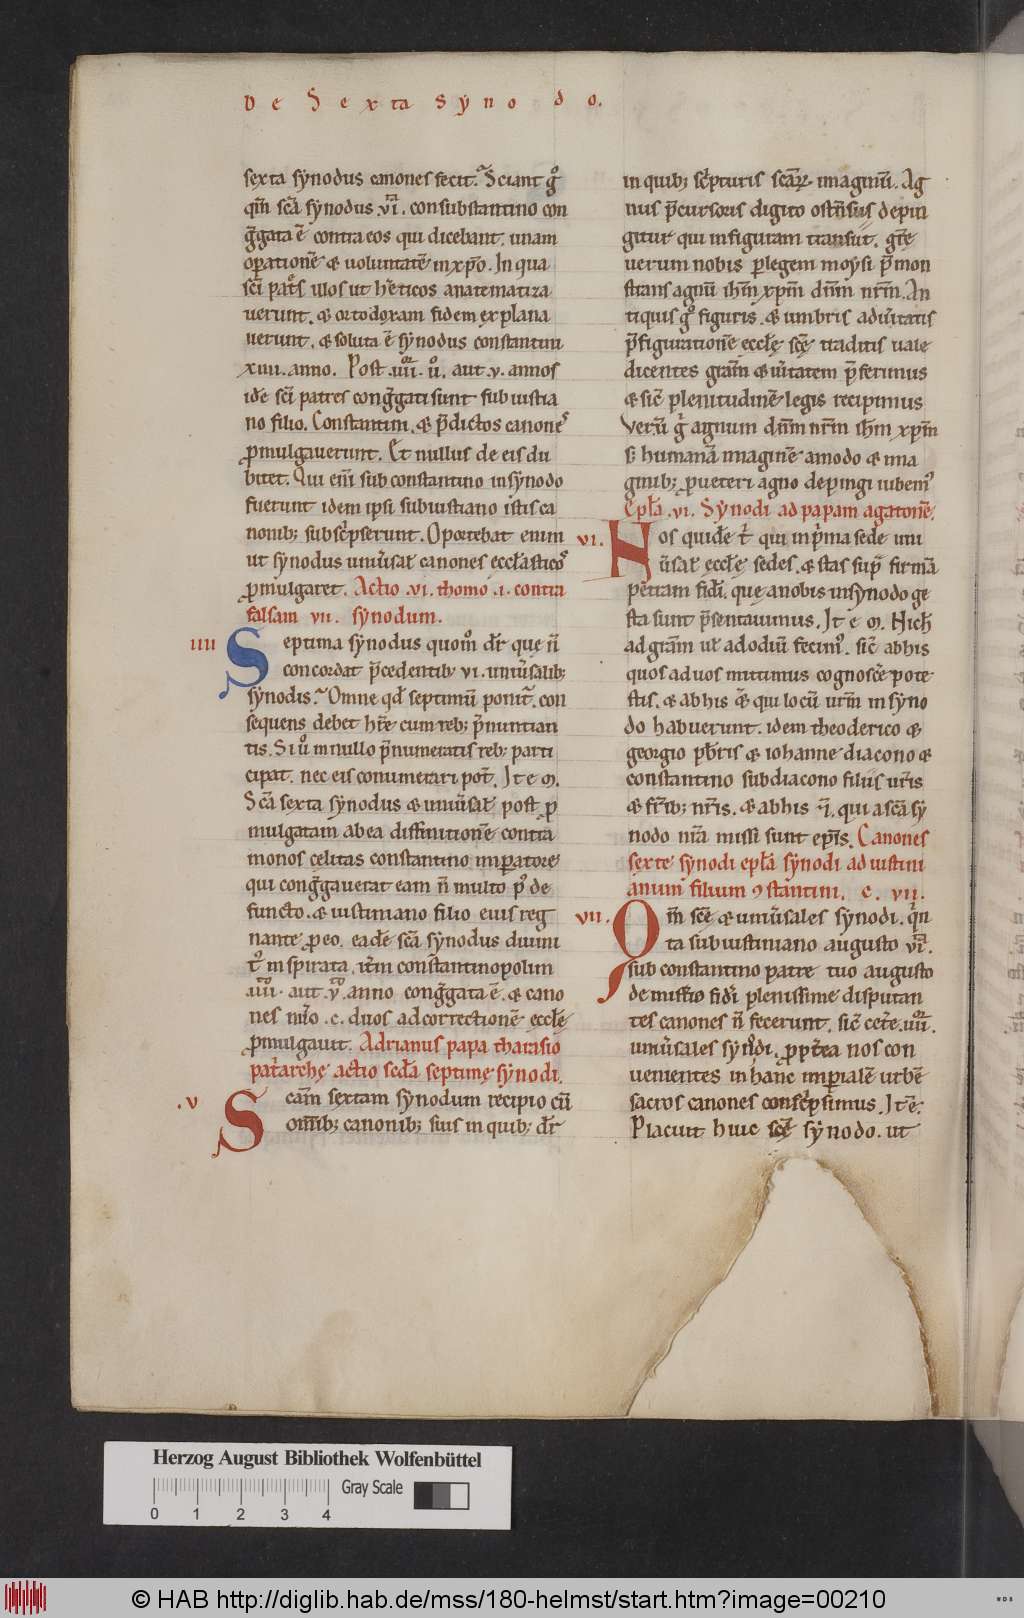 De Sexta Synodo.
sexta synodus canones fecit. Sciant g̊
qm̄ sc̄a synodus .vi. consubstantino con
ḡgata ē contra eos qui dicebant. unam
oꝑationē & uoluntatē in xp̄o. In qua
sc̄i pat̄s illos ut heticos anatematiza
uerunt. & ortodoxam fidem explana
uerunt. & soluta ē synodus constantini
xiiii. anno. Post .iiii. ů. aut .v. annos
idē sc̄i patres conḡgati sunt sub iustia
no filio. Constantini. & p̄dictos canones
ꝓmulgauerunt. Et nullus de eis du
bitet. Qui eni̅ sub constantino in synodo
fuerunt idem ipsi sub iustiano istis ca
nonib; subsc̄pserunt. Oportebat enim
ut synodus uniu̅sał canones eccłasticos
ꝓmulgaret. Actio .vi. thomo .i. contra
falsam vii. synodum.
iiii Septima synodus quom̊ dr̄ que n̄
concordat p̄cedentib; vi. uniu̅salib;
synodis. Omne qd̄ septimū ponit̄. con
sequens debet hr̄e cum reb; p̄nuntian
tis. Si ů in nullo p̄numeratis reb; parti
cipat. nec eis conumerari pot̄. Item.
Sc̄a sexta synodus & uniu̅sał post ꝓ
mulgatam ab ea diffinitionē contra
monos celitas constantino imꝑatore
qui conḡgauerat eam n̄ multo p̊ de
functo. & iustiniano filio eius reg
nante ꝓ eo. eadē sc̄a synodus diuini
t̊ inspirata. itm̄ constantinopolim
.iiii. aut .v. anno conḡgata ē. & cano
nes nu̅o .c. duos ad correctionē eccłe
ꝓmulgauit. Adrianus papa tharasio
pat̄arche actio scđa septime synodi.
.v Scam̄ sextam synodum recipio cū
om̄ib; canonib; suis in quib; dr̄
in quib; sc̄pturis scāꝝ imaginū. Ag
nus p̄cursoris digito ostn̄sus depin
gitur qui in figuram transiit. gr̄e
uerum nobis ꝑ legem moysi p̄mon
strans agnū ihm̄ xpm̄ dn̄m nr̄m. An
tiquis g̊ figuris. & umbris ad u̅itatis
p̄figurationē eccłę scę traditis uale
dicentes grām & u̅itatem p̄ferimus
& sic̄ plenitudinē legis recipimus
Verū g̊ agnum dn̄m nr̄m ihm̄ xpm̄
s; humanā imaginē amodo & ima
ginib; ꝓ ueteri agno depingi iubem̊
Epła .vi. Synodi ad papam agatonē.
vi. Nos quidē t̊ qui in p̊ma sede uni
u̅sał eccłę sedes. & stas sup̄ firmā
petram fidi. quę a nobis in synodo ge
sta sunt p̄sentauimus. Item. Nich
ad grām ul̄ ad odiū fecim̊. sic̄ ab his
quos ad uos mittimus cognosc̄e pote
stis. & ab his q̄ qui locū urm̄ in syno
do habuerunt. idem theoderico &
georgio pb̄ris & iohanne diacono &
constantino subdiacono filiis ur̄is
& fr̄ib; nr̄is. & ab his n̄. qui a scā sy
nodo nr̄a missi sunt ep̄is. Canones
sexte synodi epła synodi ad iustini
anum filium ꝯstantini. c. vii.
vii. Qm̄ scę & uniu̅sales synodi. q̊n
ta sub iustiniano augusto .vi.
sub constantino patre tuo augusto
de mist̄io fidi plenissime disputan
tes canones n̄ fecerunt. sic̄ cet̄e .iiii.
uniu̅sales synodi. ꝓpt̄ea nos con
uenientes in hanc imꝑialē urbē
sacros canones consc̊psimus. Itē.
Placuit huic scę synodo. ut
Herzog August Bibliothek Wolfenbüttel
Gray Scale
0 1 2 3 4
© HAB http://diglib.hab.de/mss/180-helmst/start.htm?image=00210